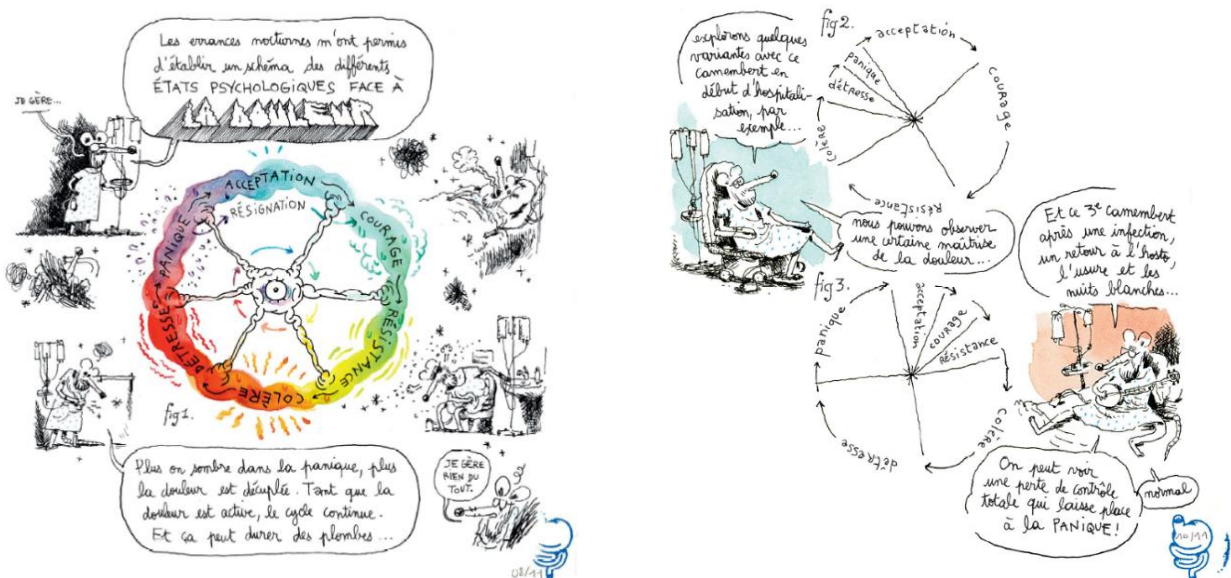 Les errances nocturnes m'ont permis
d'établir un schéma des différents
ÉTATS PSYCHOLOGIQUES FACE À
LA DOULEUR
JE GÈRE...
ACCEPTATION
RÉSIGNATION
COURAGE
RÉSISTANCE
COLÈRE
DÉTRESSE
PANIQUE
fig1.
Plus on sombre dans la panique, plus
la douleur est décuplée. Tant que la
douleur est active, le cycle continue.
Et ça peut durer des plombes...
JE GÈRE
RIEN DU
TOUT.
09/11
explorons quelques
variantes avec ce
camembert en
début d'hospitali-
sation, par
exemple...
fig2.
acceptation
courage
résistance
colère
détresse
panique
nous pouvons observer
une certaine maîtrise
de la douleur...
Et ce 3e camembert
après une infection,
un retour à l'hosto,
l'usure et les
nuits blanches...
fig3.
acceptation
courage
résistance
colère
détresse
panique
On peut voir
une perte de contrôle
totale qui laisse place
à la PANIQUE!
normal
10/11